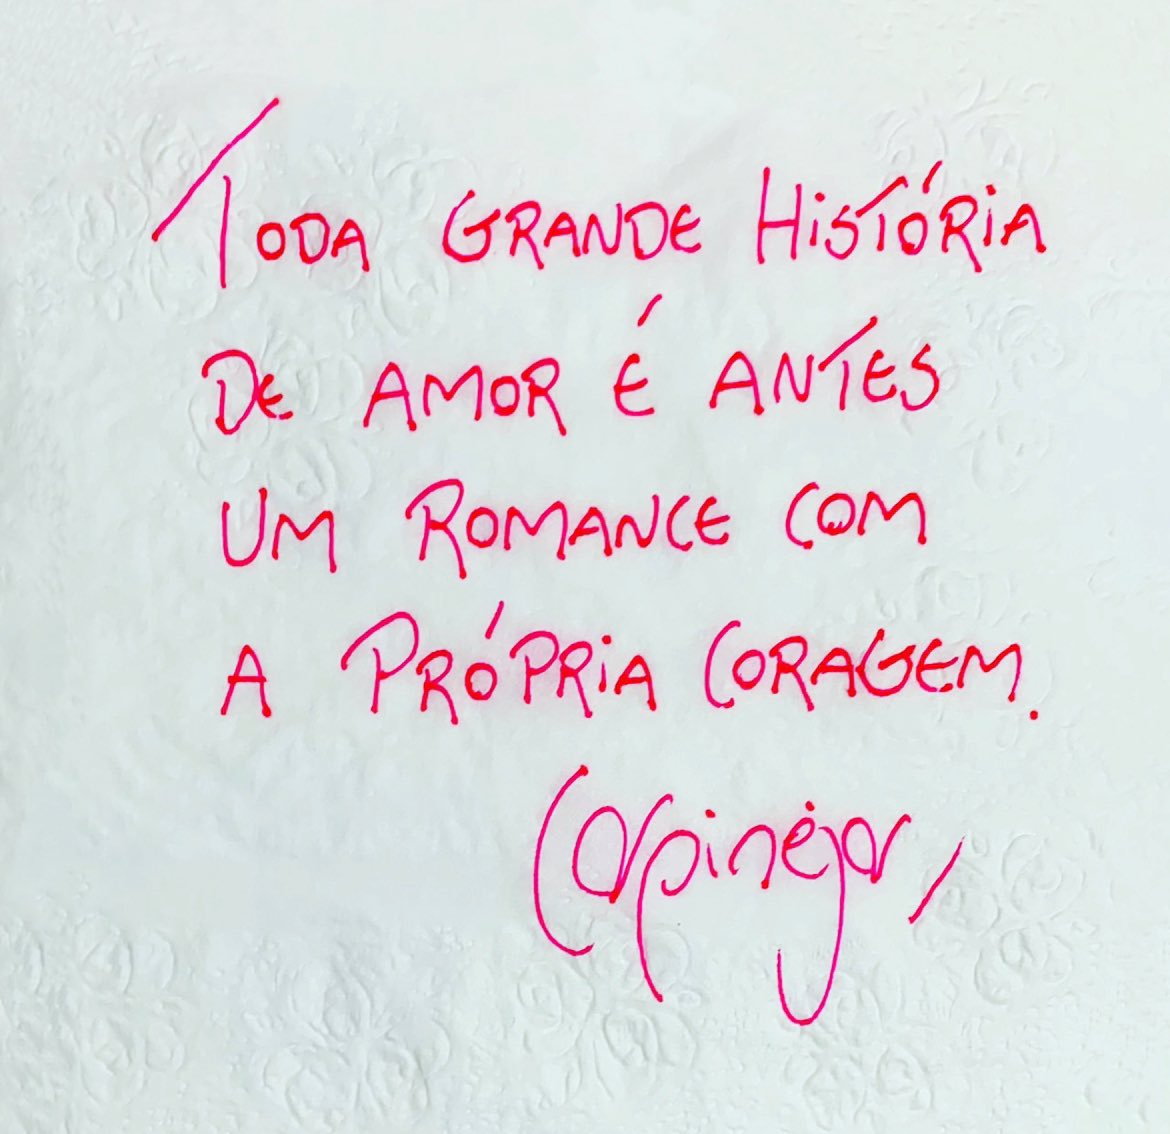 TODA GRANDE HISTÓRIA
DE AMOR É ANTES
UM ROMANCE COM
A PRÓPRIA CORAGEM.
Carpinejar,